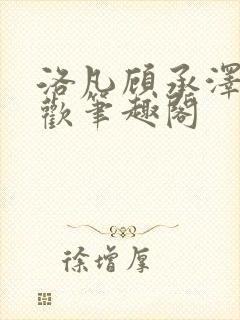 洛凡顾承泽
歡筆趣閣
徐增厚